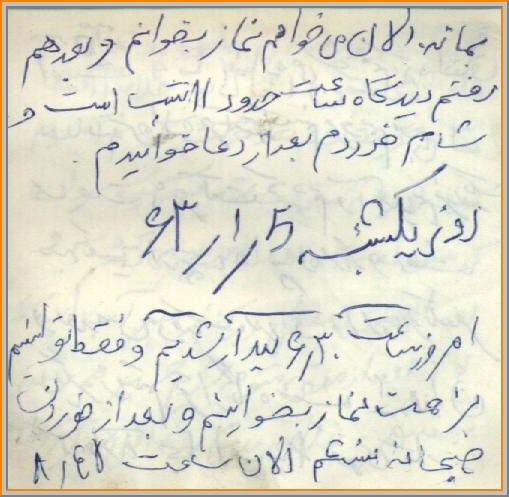 بماند. الان می خواهم نماز بخوانم و بعد هم
رفتم دیدگاه ساعت حدود ۱۱ شب است و
شام خوردم بعد از دعا خوابیدم.
روز یکشنبه ۶۳/۱/۵
امروز ساعت ۶/۳۰ بیدار شدیم و فقط توانستیم
نماز بخوانیم و بعد از خوردن
صبحانه نشستم الان ساعت ۸/۴۵